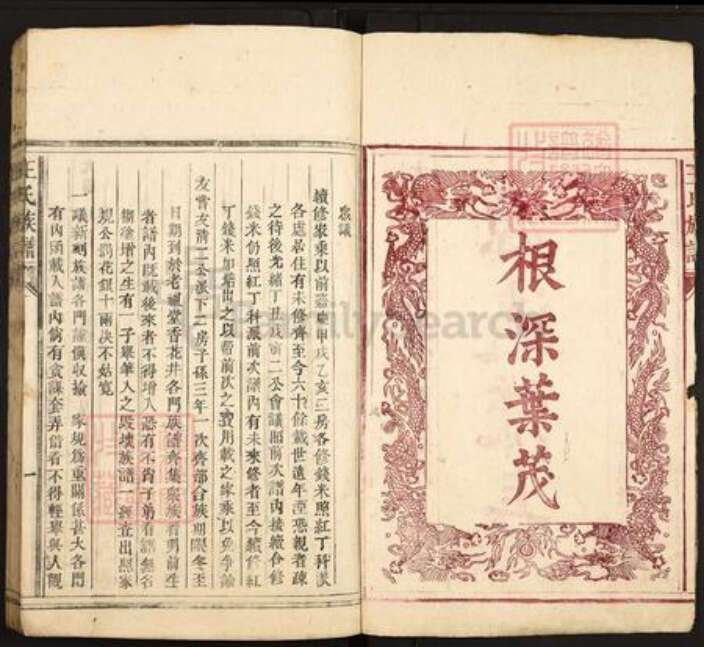 根深葉茂
王氏族譜
眾議
續修家乘以前嘉慶甲戌乙亥三房各修錢米照紅丁科派
各處居住有未修齊至今六十餘載世遠年湮恐親者疎
之待後光緒丁丑戊寅二公會議照前次譜內接續合修
錢米仍照紅丁科派前次譜內有未來修者至今續修紅
丁錢米加給出之以幫前次之費用載之家乘以免爭論
友實友清二公派下二房子孫三年一次齊部合族期限冬至
日期到於老祖堂香花并各門族譜齊集眾族看明前生
者譜內既載後來者不得增入恐有不肖子弟看譜無名
糊塗增之生有一子舉筆人之毀壞族譜一經查出照家
規公罰花銀十兩決不姑寬
一議新明族譜各門謹慎收撿 家規為重關係甚大各門
有內須載入譜內倘有貪謀套弄借看不得輕舉與人觀
王氏族譜
一